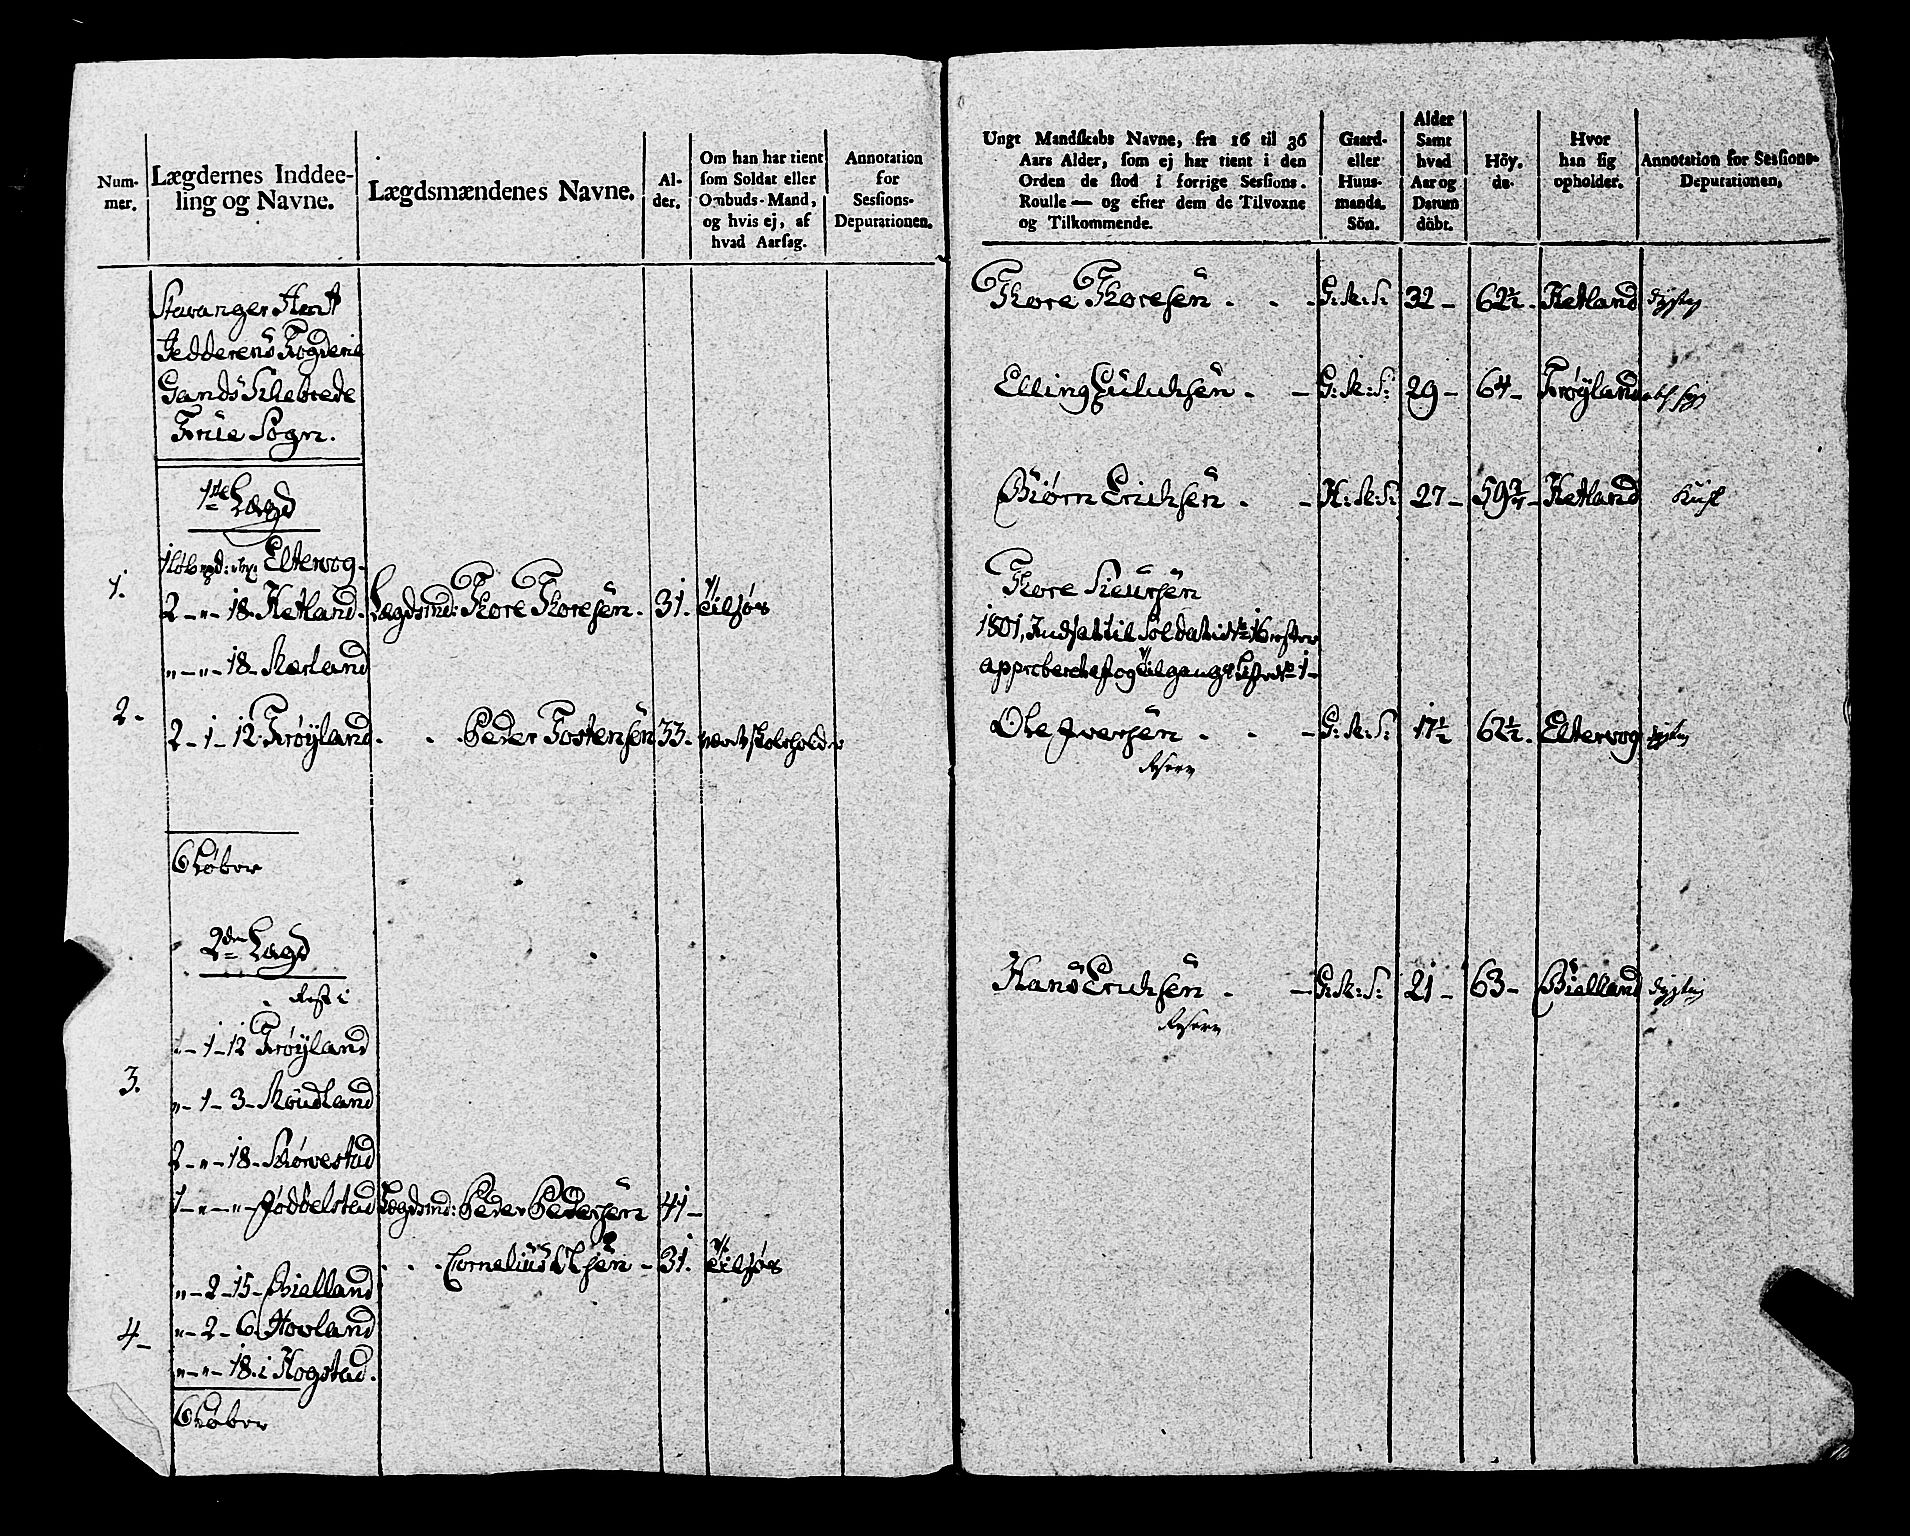 Num-
mer.
Lægdernes Inddee-
ling og Navne.
Lægdsmændenes Navne.
Al-
der.
Om han har tient
som Soldat eller
Ombuds-Mand,
og hvis ej, af
hvad Aarsag.
Annotation
for
Sessions-
Deputationen.
Stavanger Amt
Jedderens Fogderie
Gands Skibrede
Früe Sogn.
1ste Lægd
Eltervog
1.
2 - " - 18. Hetland. Lægdsmd: Thore Thoresen. 31.
" - " - 18. Mærland
2 -
2 - 1 - 12. Frøyland. . . Peder Tostensen 33.
6 Løber
2den Lægd
Rest i
1 - 1 - 12 Frøyland
3.
" - 1 - 3 - Møudland
2 - " - 18 - Skørvestad
1 - " - " - Jødbelstad Lægdsmd: Peder Pedersen 41 -
. . . Cornelius Olsen - 31.
" - 2 - 15 - Bielland
4 -
" - 2 - 6. Hovland
" - " - 18. i Kogstad.
6 Løber
Ungt Mandskabs Navne, fra 16 til 36
Aars Alder, som ej har tient i den
Orden de stod i forrige Sessions-
Roulle — og efter dem de Tilvoxne
og Tilkommende.
Gaard-
eller
Huus-
mands.
Sön.
Alder
Samt
hvad
Aar og
Datum
döbt.
Höy-
de.
Hvor
han sig
opholder.
Annotation for Sessions-
Deputationen.
Thore Thoresen . . . G: M: S: 32 - 62½. Hetland dygtig
Elling Eriksen . - G: M: S: 29 - 64 - Frøyland
Biørn Erichsen . - H: M: S: 27 - 59¾ - Hetland
Thore Sieursen
1801, Indsat til Soldat
approberet
Ole Iversen . . - G: M: S: 17½ 62½. Eltervog dygtig
Reserv
Hans Erichsen . - G: M: S: 21 - 63 - Bielland dygtig
Reserv